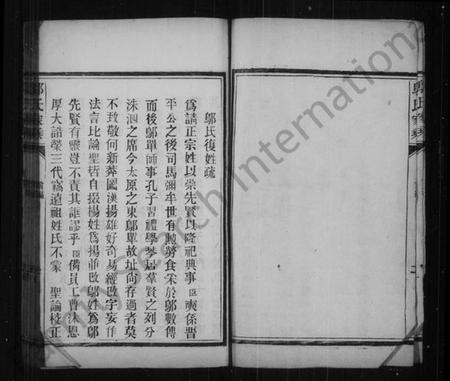 鄔氏復姓疏
爲請正宗姓以崇先賢以隆祀典事臣爽係晋
平公之後司馬彌牟世有勲勞食采於鄔數傳
而後鄔單師事孔子習禮學琴居羣賢之列分
洙泗之席今太原之東鄔單故址尚存過者莫
不致敬何新莽圖漢揚雄好奇易經改字妄作
法言比論聖哲自掇楊姓爲揚並改鄔姓爲鄥
先賢有靈豈不責其誣謬乎臣備員工曹沐恩
厚大誥榮三代竊遠祖姓氏不蒙 聖諭校正
鄔氏家乘
Research International